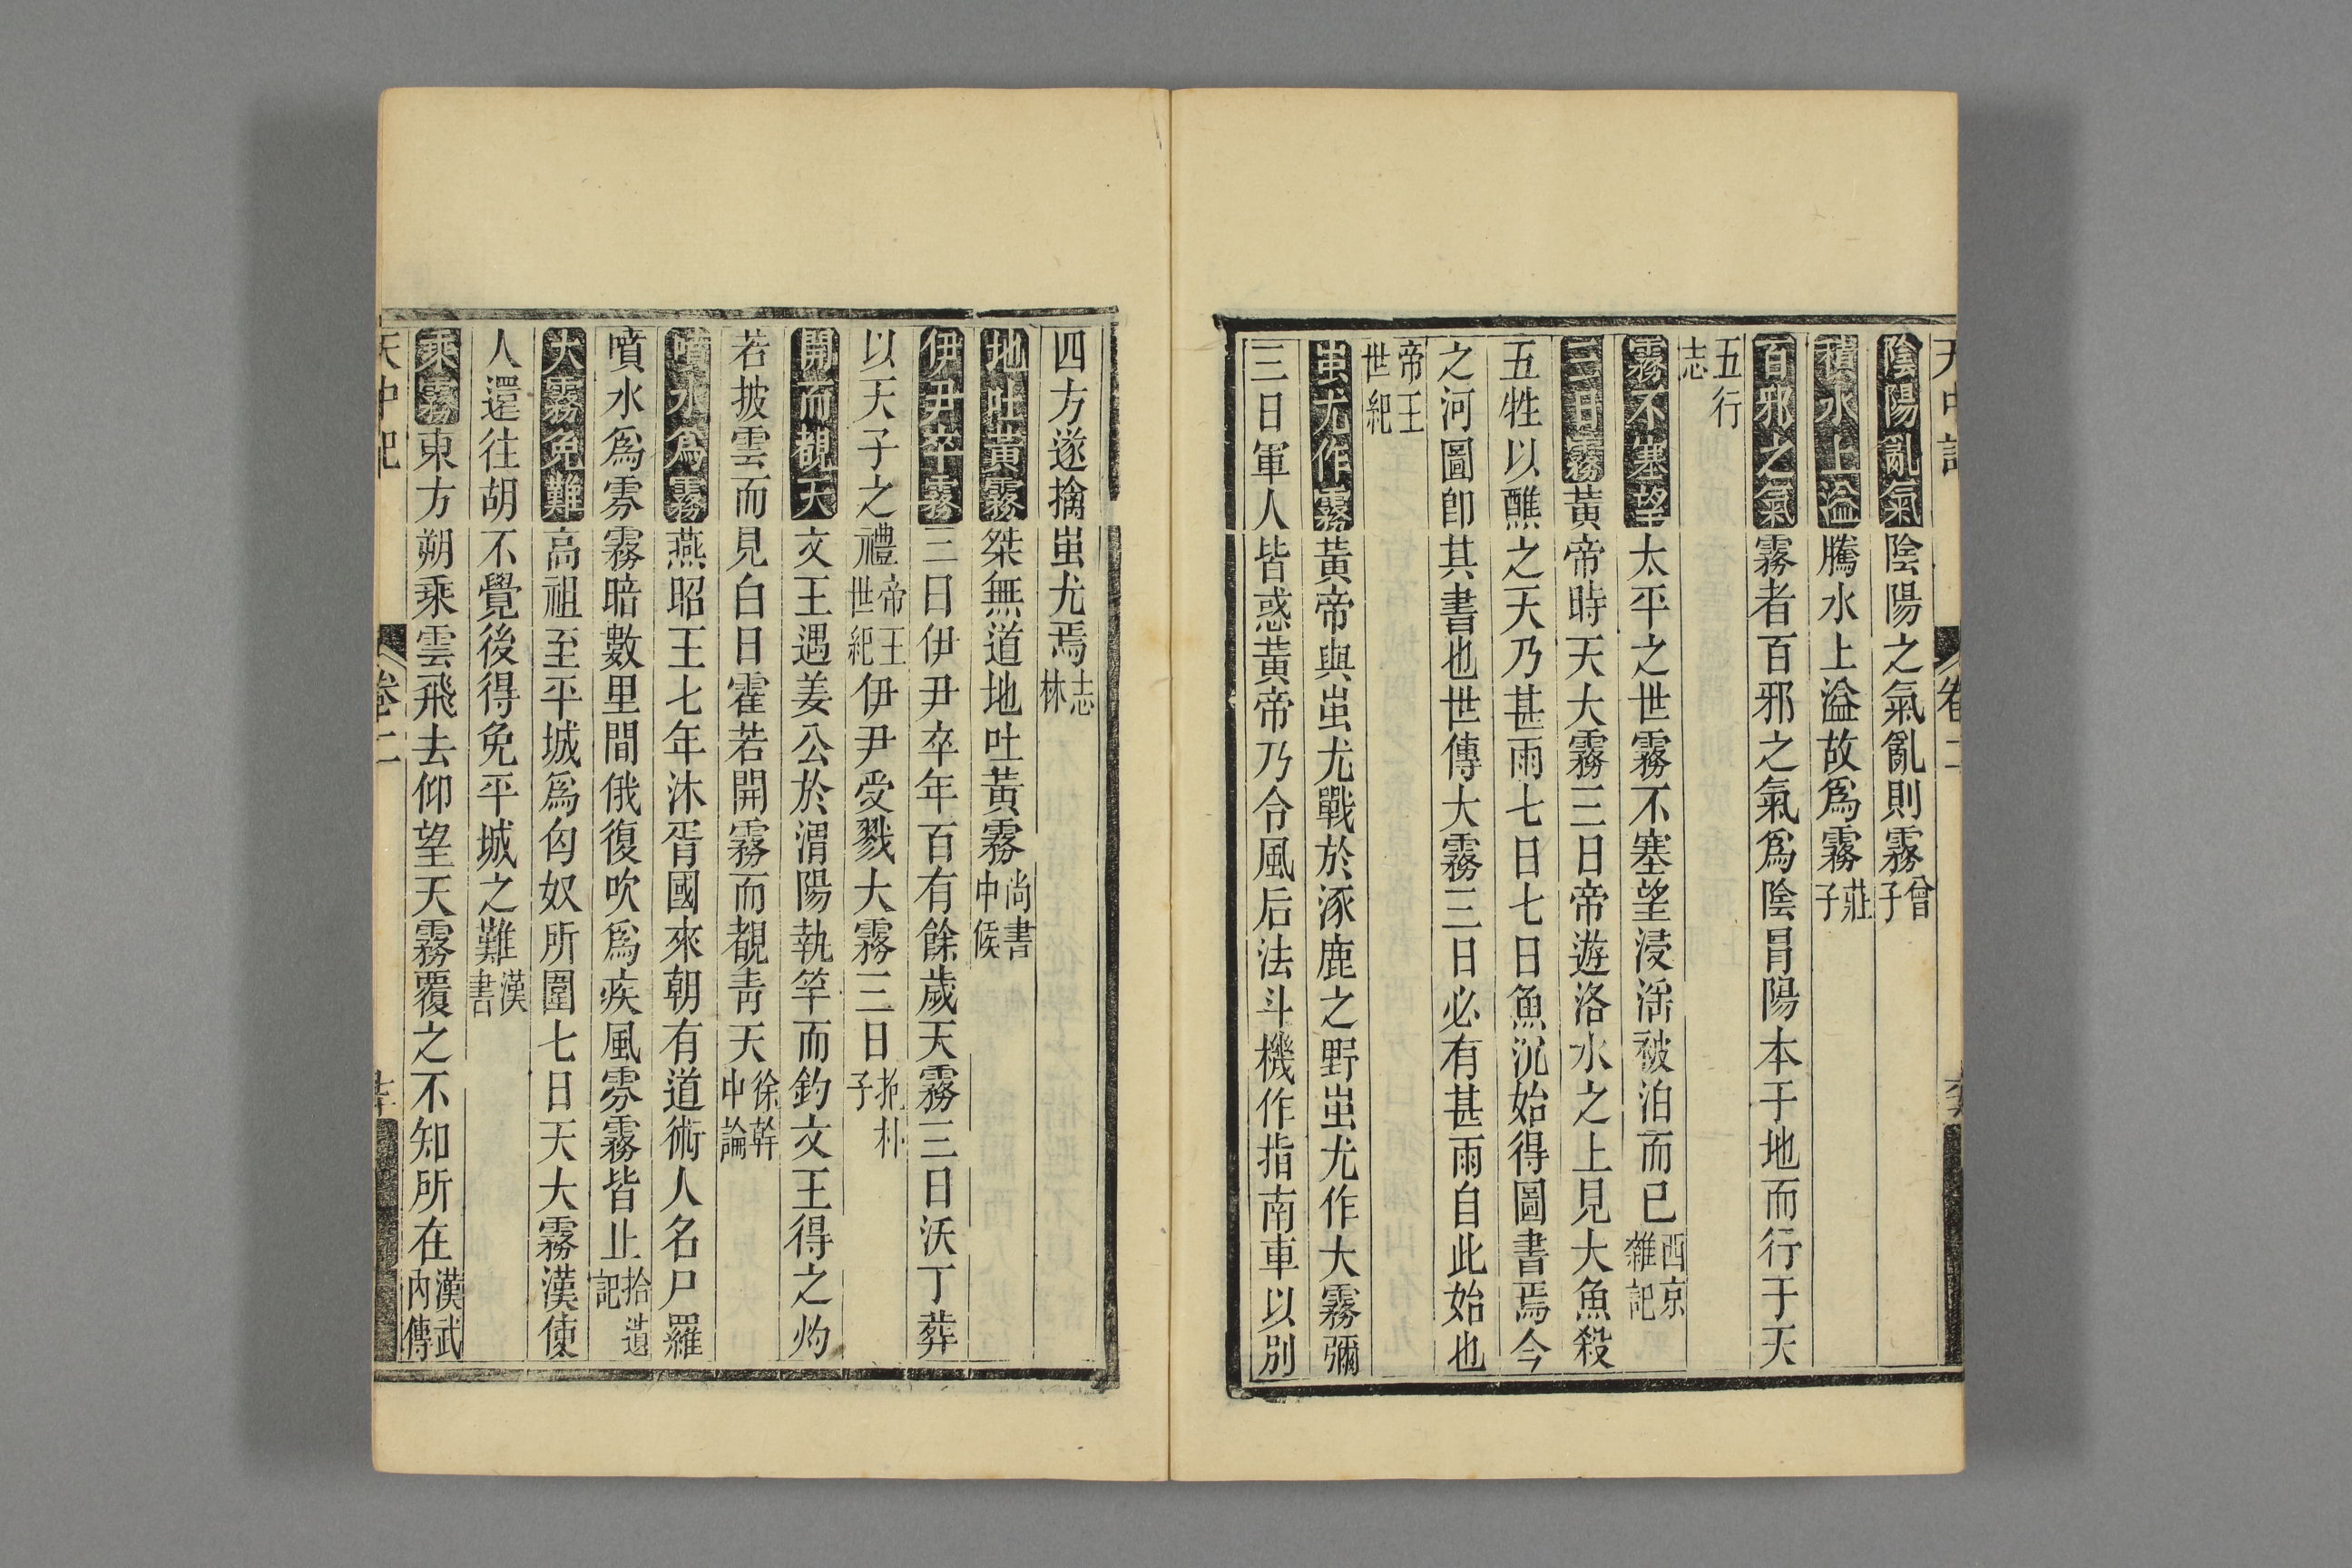 陰陽亂氣陰陽之氣亂則霧曾子
積水上溢騰水上溢故爲霧莊子
百邪之氣霧者百邪之氣爲陰冒陽本于地而行于天
五行志
霧不塞望太平之世霧不塞望浸淫被泊而已西京雜記
三日霧黃帝時天大霧三日帝遊洛水之上見大魚殺
五牲以醮之天乃甚雨七日七日魚沉始得圖書焉今
之河圖卽其書也世傳大霧三日必有甚雨自此始也
帝王世紀
蚩尤作霧黃帝與蚩尤戰於涿鹿之野蚩尤作大霧彌
三日軍人皆惑黃帝乃令風后法斗機作指南車以別
四方遂擒蚩尤焉志林
地吐黃霧桀無道地吐黃霧尚書中候
伊尹卒霧三日伊尹卒年百有餘歲天霧三日沃丁葬
以天子之禮帝王世紀伊尹受戮大霧三日抱朴子
開而覩天文王遇姜公於渭陽執竿而釣文王得之灼
若披雲而見白日霍若開霧而覩靑天徐幹中論
噴水爲霧燕昭王七年沐胥國來朝有道術人名尸羅
噴水爲雰霧暗數里間俄復吹爲疾風雰霧皆止拾遺記
大霧免難高祖至平城爲匈奴所圍七日天大霧漢使
人還往胡不覺後得免平城之難漢書
乘霧東方朔乘雲飛去仰望天霧覆之不知所在漢武內傳
天中記 卷二